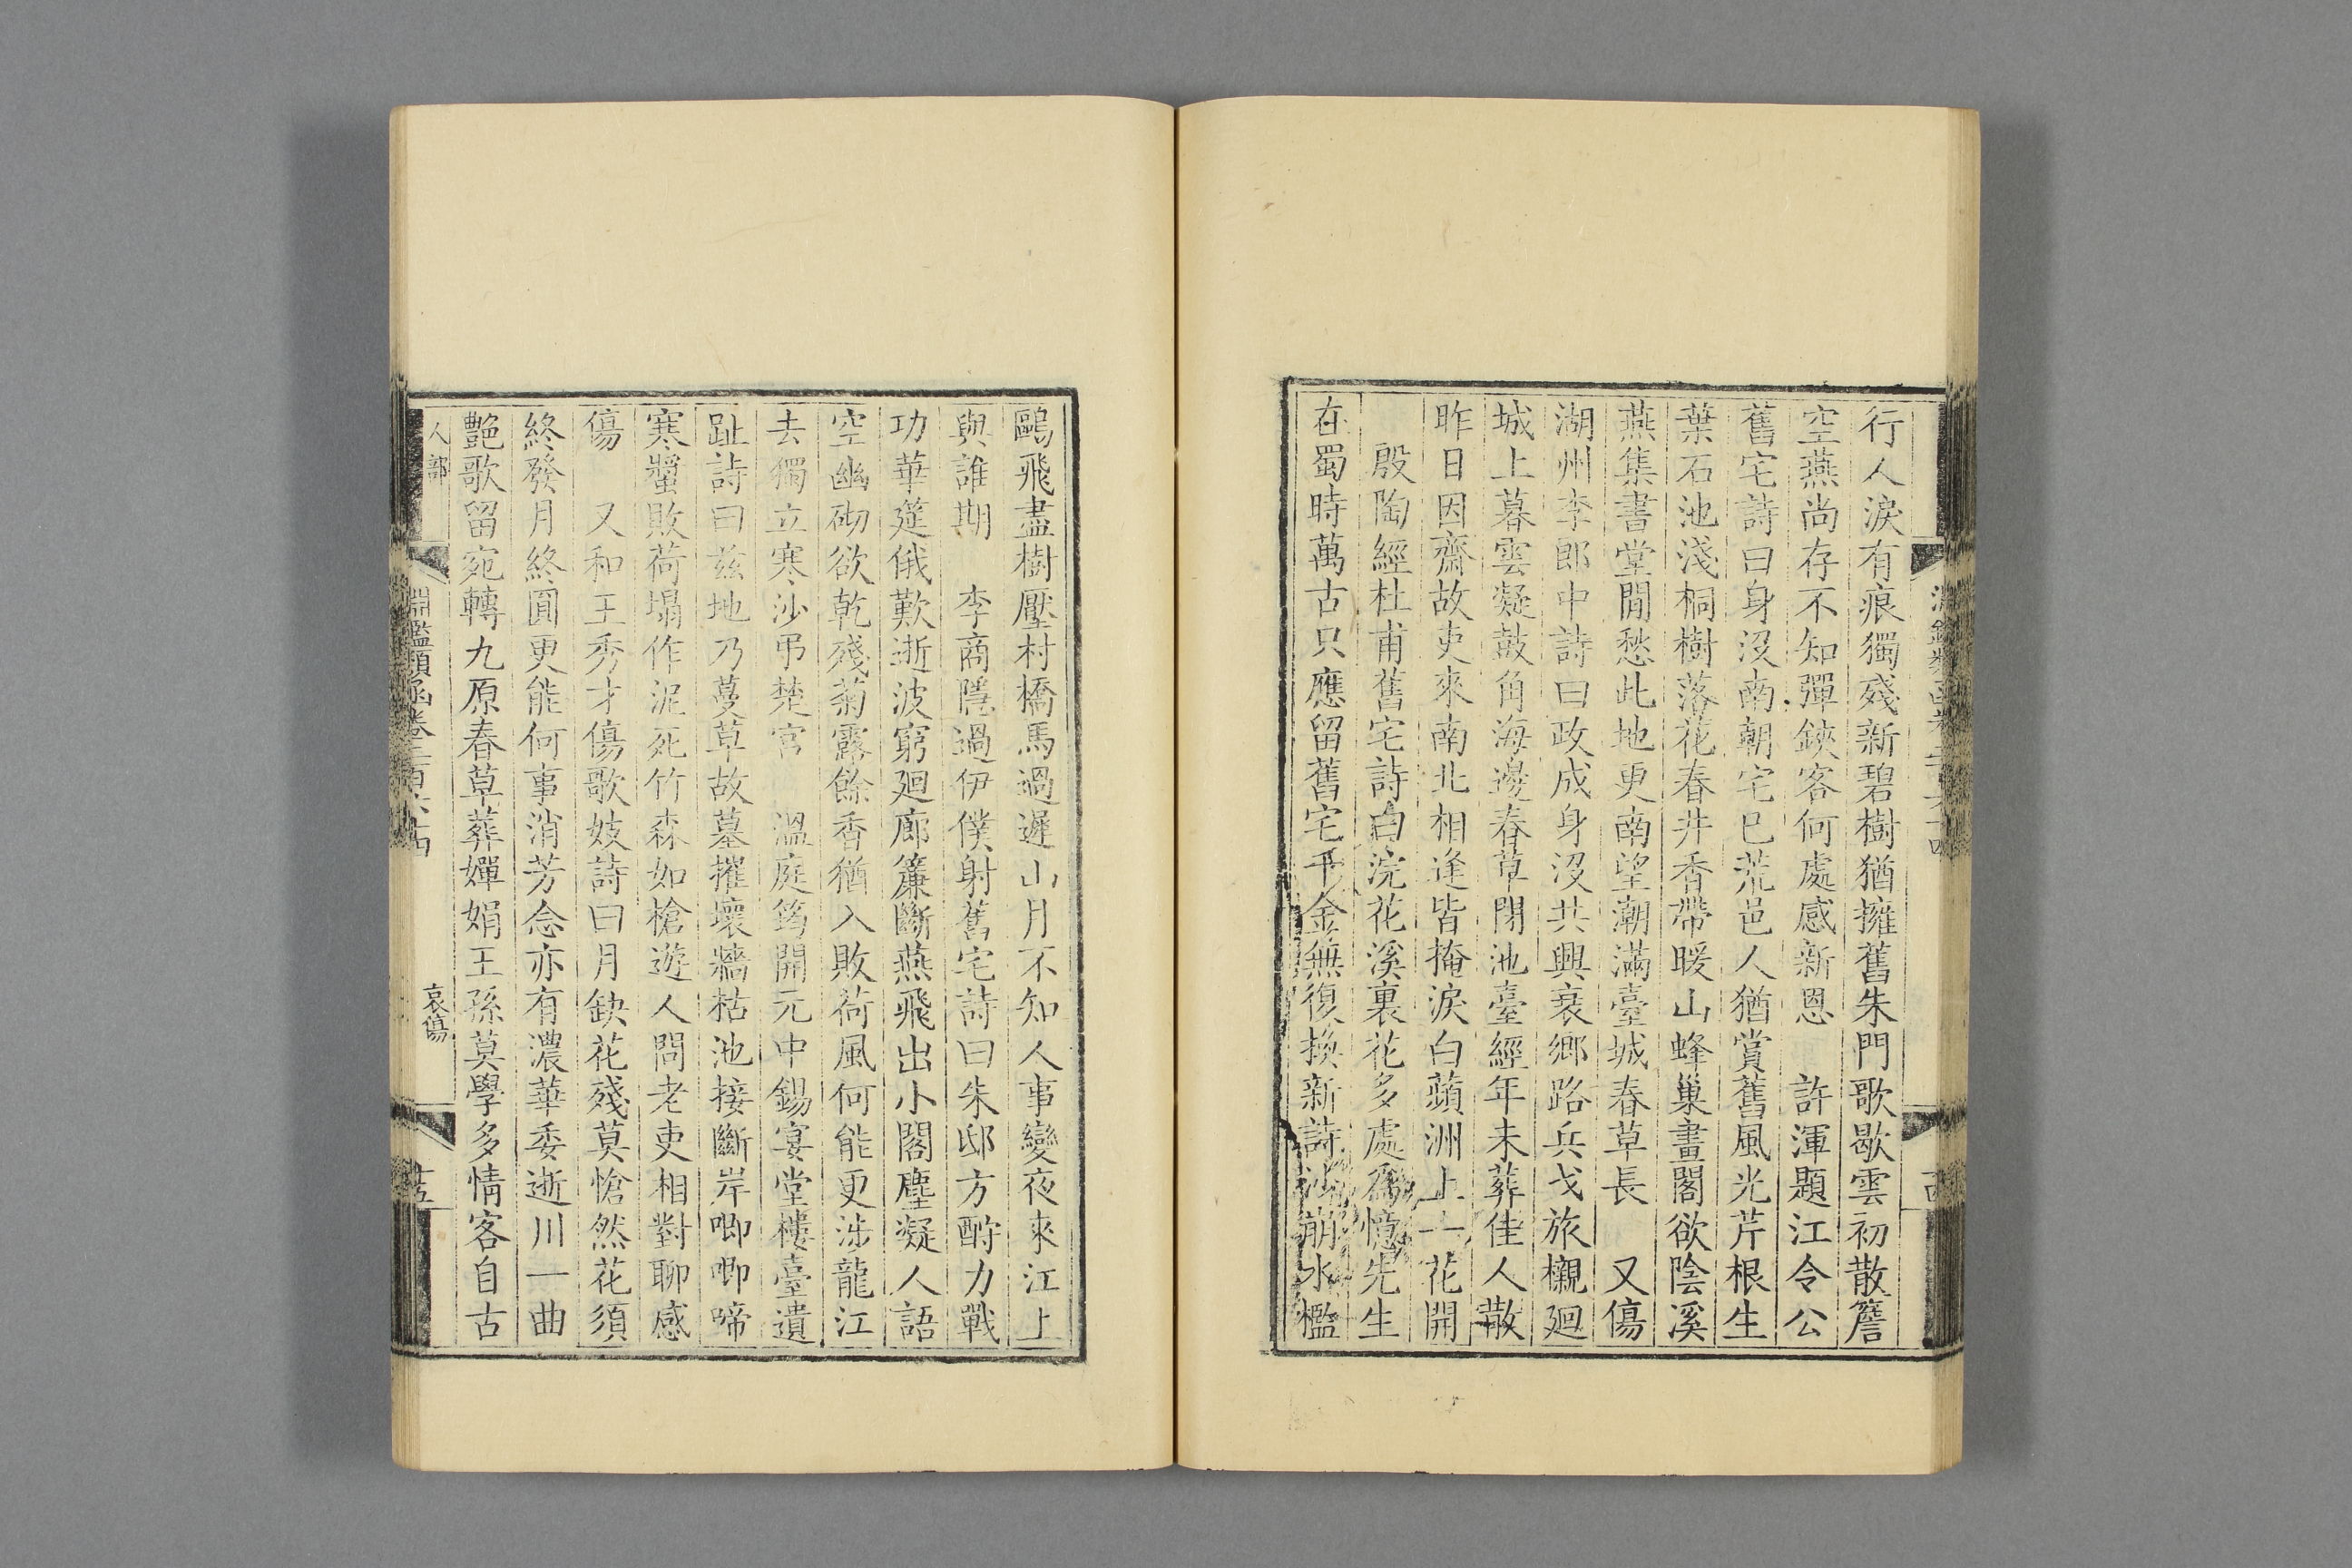 行人淚有痕獨殘新碧樹猶擁舊朱門歌歇雲初散簷
空燕尚存不知彈鋏客何處感新恩　許渾題江令公
舊宅詩曰身沒南朝宅已荒邑人猶賞舊風光芹根生
葉石池淺桐樹落花春井香帶暖山蜂巢畫閣欲陰溪
燕集書堂閒愁此地更南望潮滿臺城春草長　又傷
湖州李郎中詩曰政成身沒共興衰鄉路兵戈旅櫬廻
城上暮雲凝鼓角海邊春草閉池臺經年未葬佳人散
昨日因齋故吏來南北相逢皆掩淚白蘋洲上一花開
殷陶經杜甫舊宅詩曰浣花溪裏花多處爲憶先生
在蜀時萬古只應留舊宅千金無復換新詩沙崩水檻
鷗飛盡樹壓村橋馬過遲山月不知人事變夜來江上
與誰期　李商隱過伊僕射舊宅詩曰朱邸方酧力戰
功華筵俄歎逝波窮廻廊簾斷燕飛出小閣塵凝人語
空幽砌欲乾殘菊露餘香猶入敗荷風何能更涉龍江
去獨立寒沙弔楚宮　溫庭筠開元中錫宴堂樓臺遺
趾詩曰茲地乃蔓草故墓摧壞牆枯池接斷岸唧唧啼
寒螿敗荷塌作泥死竹森如槍遊人問老吏相對聊感
傷　又和王秀才傷歌妓詩曰月缺花殘莫愴然花須
終發月終圓更能何事消芳念亦有濃華委逝川一曲
艷歌留宛轉九原春草葬嬋娟王孫莫學多情客自古
人部
淵鑑類函卷二百六十四
哀傷
十五